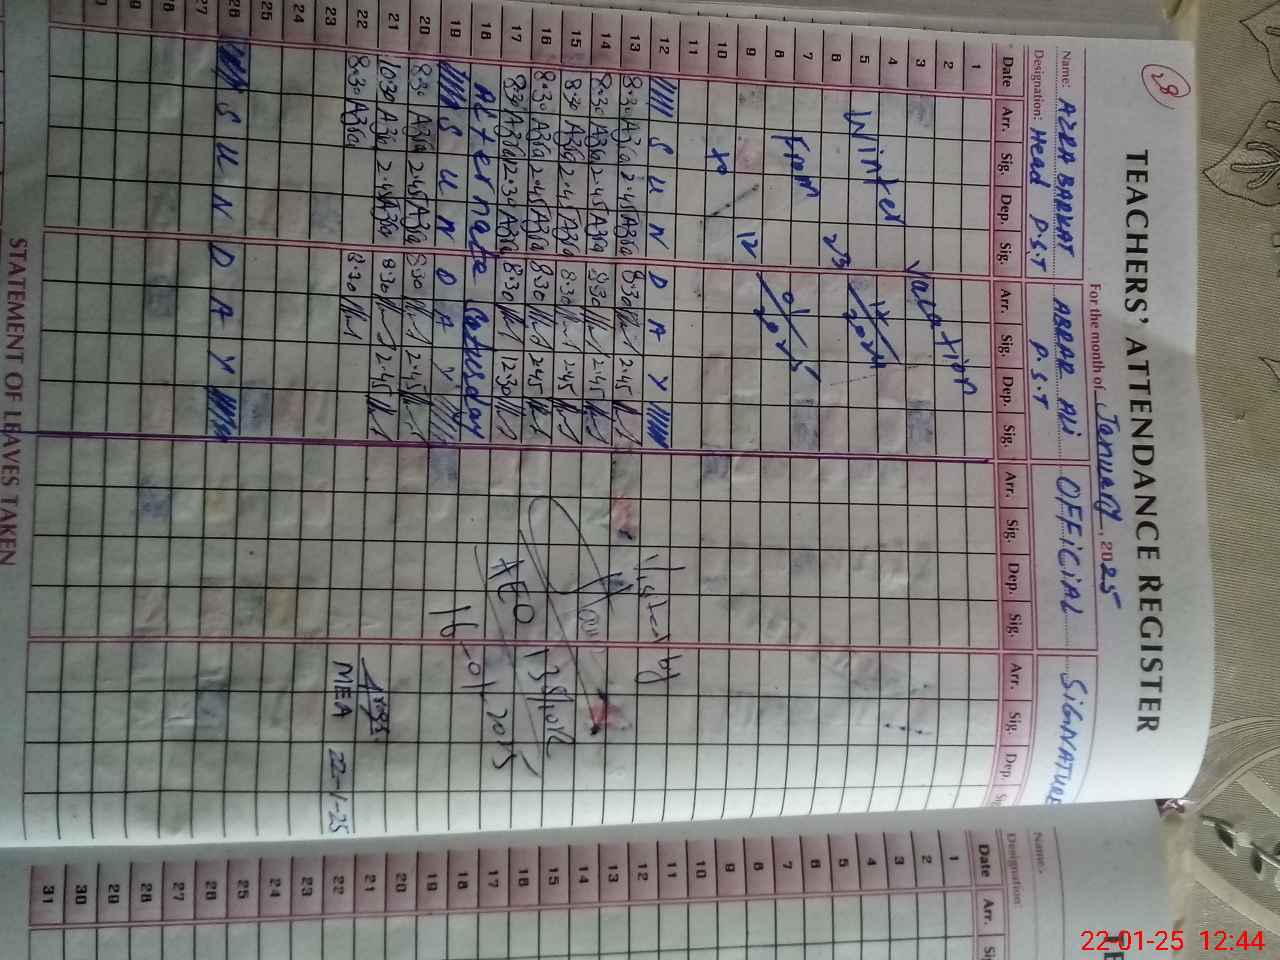 28
TEACHERS' ATTENDANCE REGISTER
For the month of January, 2025
Name: AZRA BARKAT ABRAR ALI OFFICIAL SIGNATURE
Designation: Head P.S.T P.S.T
Date Arr. Sig. Dep. Sig. Arr. Sig. Dep. Sig. Arr. Sig. Dep. Sig. Arr. Sig. Dep. Sig.
1
2
3 Vacation
4
5 Winter 12 2024
6 23
7
8 From 01 2025
9 12
10 to
11
12 S U N D A Y
13 8:30 Azra 2:45 Azra 8:30 2:45 Visited by
14 8:30 Azra 2:45 Azra 8:30 2:45
15 8:30 Azra 2:45 Azra 8:30 2:45
16 8:30 Azra 2:45 Azra 8:30 2:45
17 8:30 Azra 12:30 Azra 8:30 12:30 AEO
18 Alternate Saturday 16-01-2025
19 S U N D A Y
20 8:30 Azra 2:45 Azra 8:30 2:45
21 10:30 Azra 2:45 Azra 8:30 2:45
22 8:30 Azra 8:30 MEA 22-1-25
23
24
25
26 S U N D A Y
27
28
STATEMENT OF LEAVES TAKEN
Name:
Designation:
Date Arr.
1
2
3
4
5
6
7
8
9
10
11
12
13
14
15
16
17
18
19
20
21
22
23
24
25
26
27
28
29
30
31
22-01-25 12:44